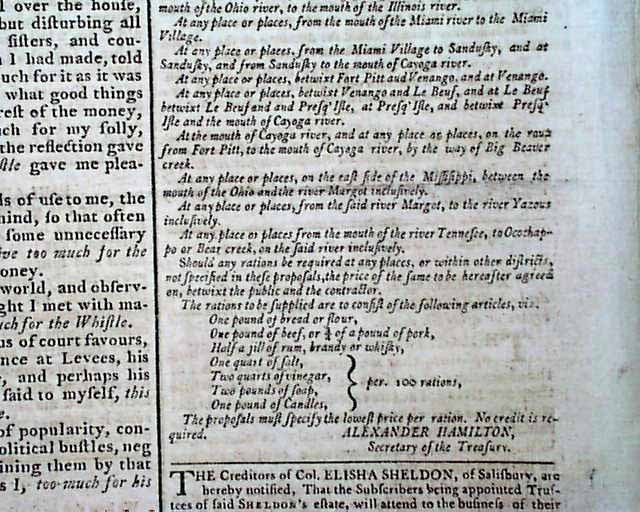 l over the house,
but disturbing all
sisters, and cou-
I had made, told
uch for it as it was
what good things
rest of the money,
ch for my folly,
the reflection gave
stle gave me plea-
ds of use to me, the
mind, so that often
some unnecessary
ive too much for the
oney.
world, and observ-
ght I met with ma-
uch for the Whistle.
us of court favours,
nce at Levees, his
, and perhaps his
said to myself, this
e.
of popularity, con-
olitical bustles, neg
ining them by that
s I, too much for his
mouth of the Ohio river, to the mouth of the Illinois river.
At any place or places, from the mouth of the Miami river to the Miami
Village.
At any place or places, from the Miami Village to Sandusky, and at
Sandusky, and from Sandusky to the mouth of Cayoga river.
At any place or places, betwixt Fort Pitt and Venango, and at Venango.
At any place or places, betwixt Venango and Le Beuf, and at Le Beuf
betwixt Le Beuf and and Presq' Isle, at Presq' Isle, and betwixt Presq'
Isle and the mouth of Cayoga river.
At the mouth of Cayoga river, and at any place or places, on the rout
from Fort Pitt, to the mouth of Cayoga river, by the way of Big Beaver
creek.
At any place or places, on the east side of the Missisippi, between the
mouth of the Ohio and the river Margot inclusively.
At any place or places, from the said river Margot, to the river Yazous
inclusively.
At any place or places from the mouth of the river Tennesee, to Ocochap-
po or Bear creek, on the said river inclusively.
Should any rations be required at any places, or within other districts,
not specified in these proposals, the price of the same to be hereafter agreed
on, betwixt the public and the contractor.
The rations to be supplied are to consist of the following articles, viz.
One pound of bread or flour,
One pound of beef, or ¾ of a pound of pork,
Half a jill of rum, brandy or whisky,
One quart of salt,
Two quarts of vinegar,
Two pounds of soap,
One pound of Candles,
per. 100 rations,
The proposals must specify the lowest price per ration. No credit is re-
quired. ALEXANDER HAMILTON,
Secretary of the Treasury.
THE Creditors of Col. ELISHA SHELDON, of Salisbury, are
hereby notified, That the Subscribers being appointed Trus-
tees of said SHELDON's estate, will attend to the business of their